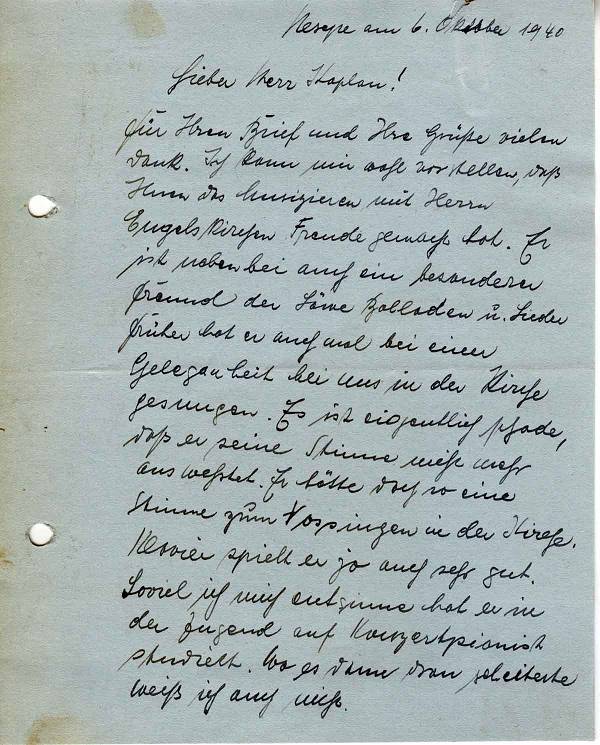 am 6. Oktober 1940
Lieber Herr Kaplan!
Für Ihren Brief und Ihre Grüße vielen
Dank. Ich kann mir wohl vorstellen, daß
Ihnen das Musizieren mit Herrn
Engelskirchen Freude gemacht hat. Er
ist nebenbei auch ein besonderer
Freund der Löwe Balladen u. Lieder
Früher hat er auch mal bei einer
Gelegenheit bei uns in der Kirche
gesungen. Es ist eigentlich schade,
daß er seine Stimme nicht mehr
auswertet. Er hätte doch so eine
Stimme zum Vorsingen in der Kirche.
Klavier spielt er ja auch sehr gut.
Soviel ich mich entsinne hat er in
der Jugend auf Konzertpianist
studiert. Wo es dann dran scheiterte
weiß ich auch nicht.